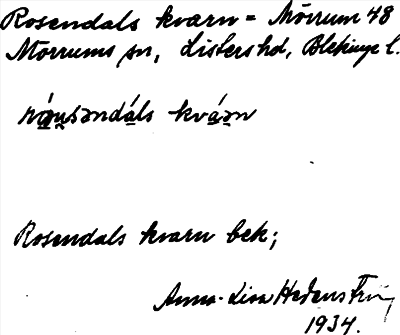 Rosendals kvarn = Mörrum 48
Mörrums sn, Listers hd, Blekinge l.
kvarn
Rosendals kvarn bek;
Anna-Lisa
1934.